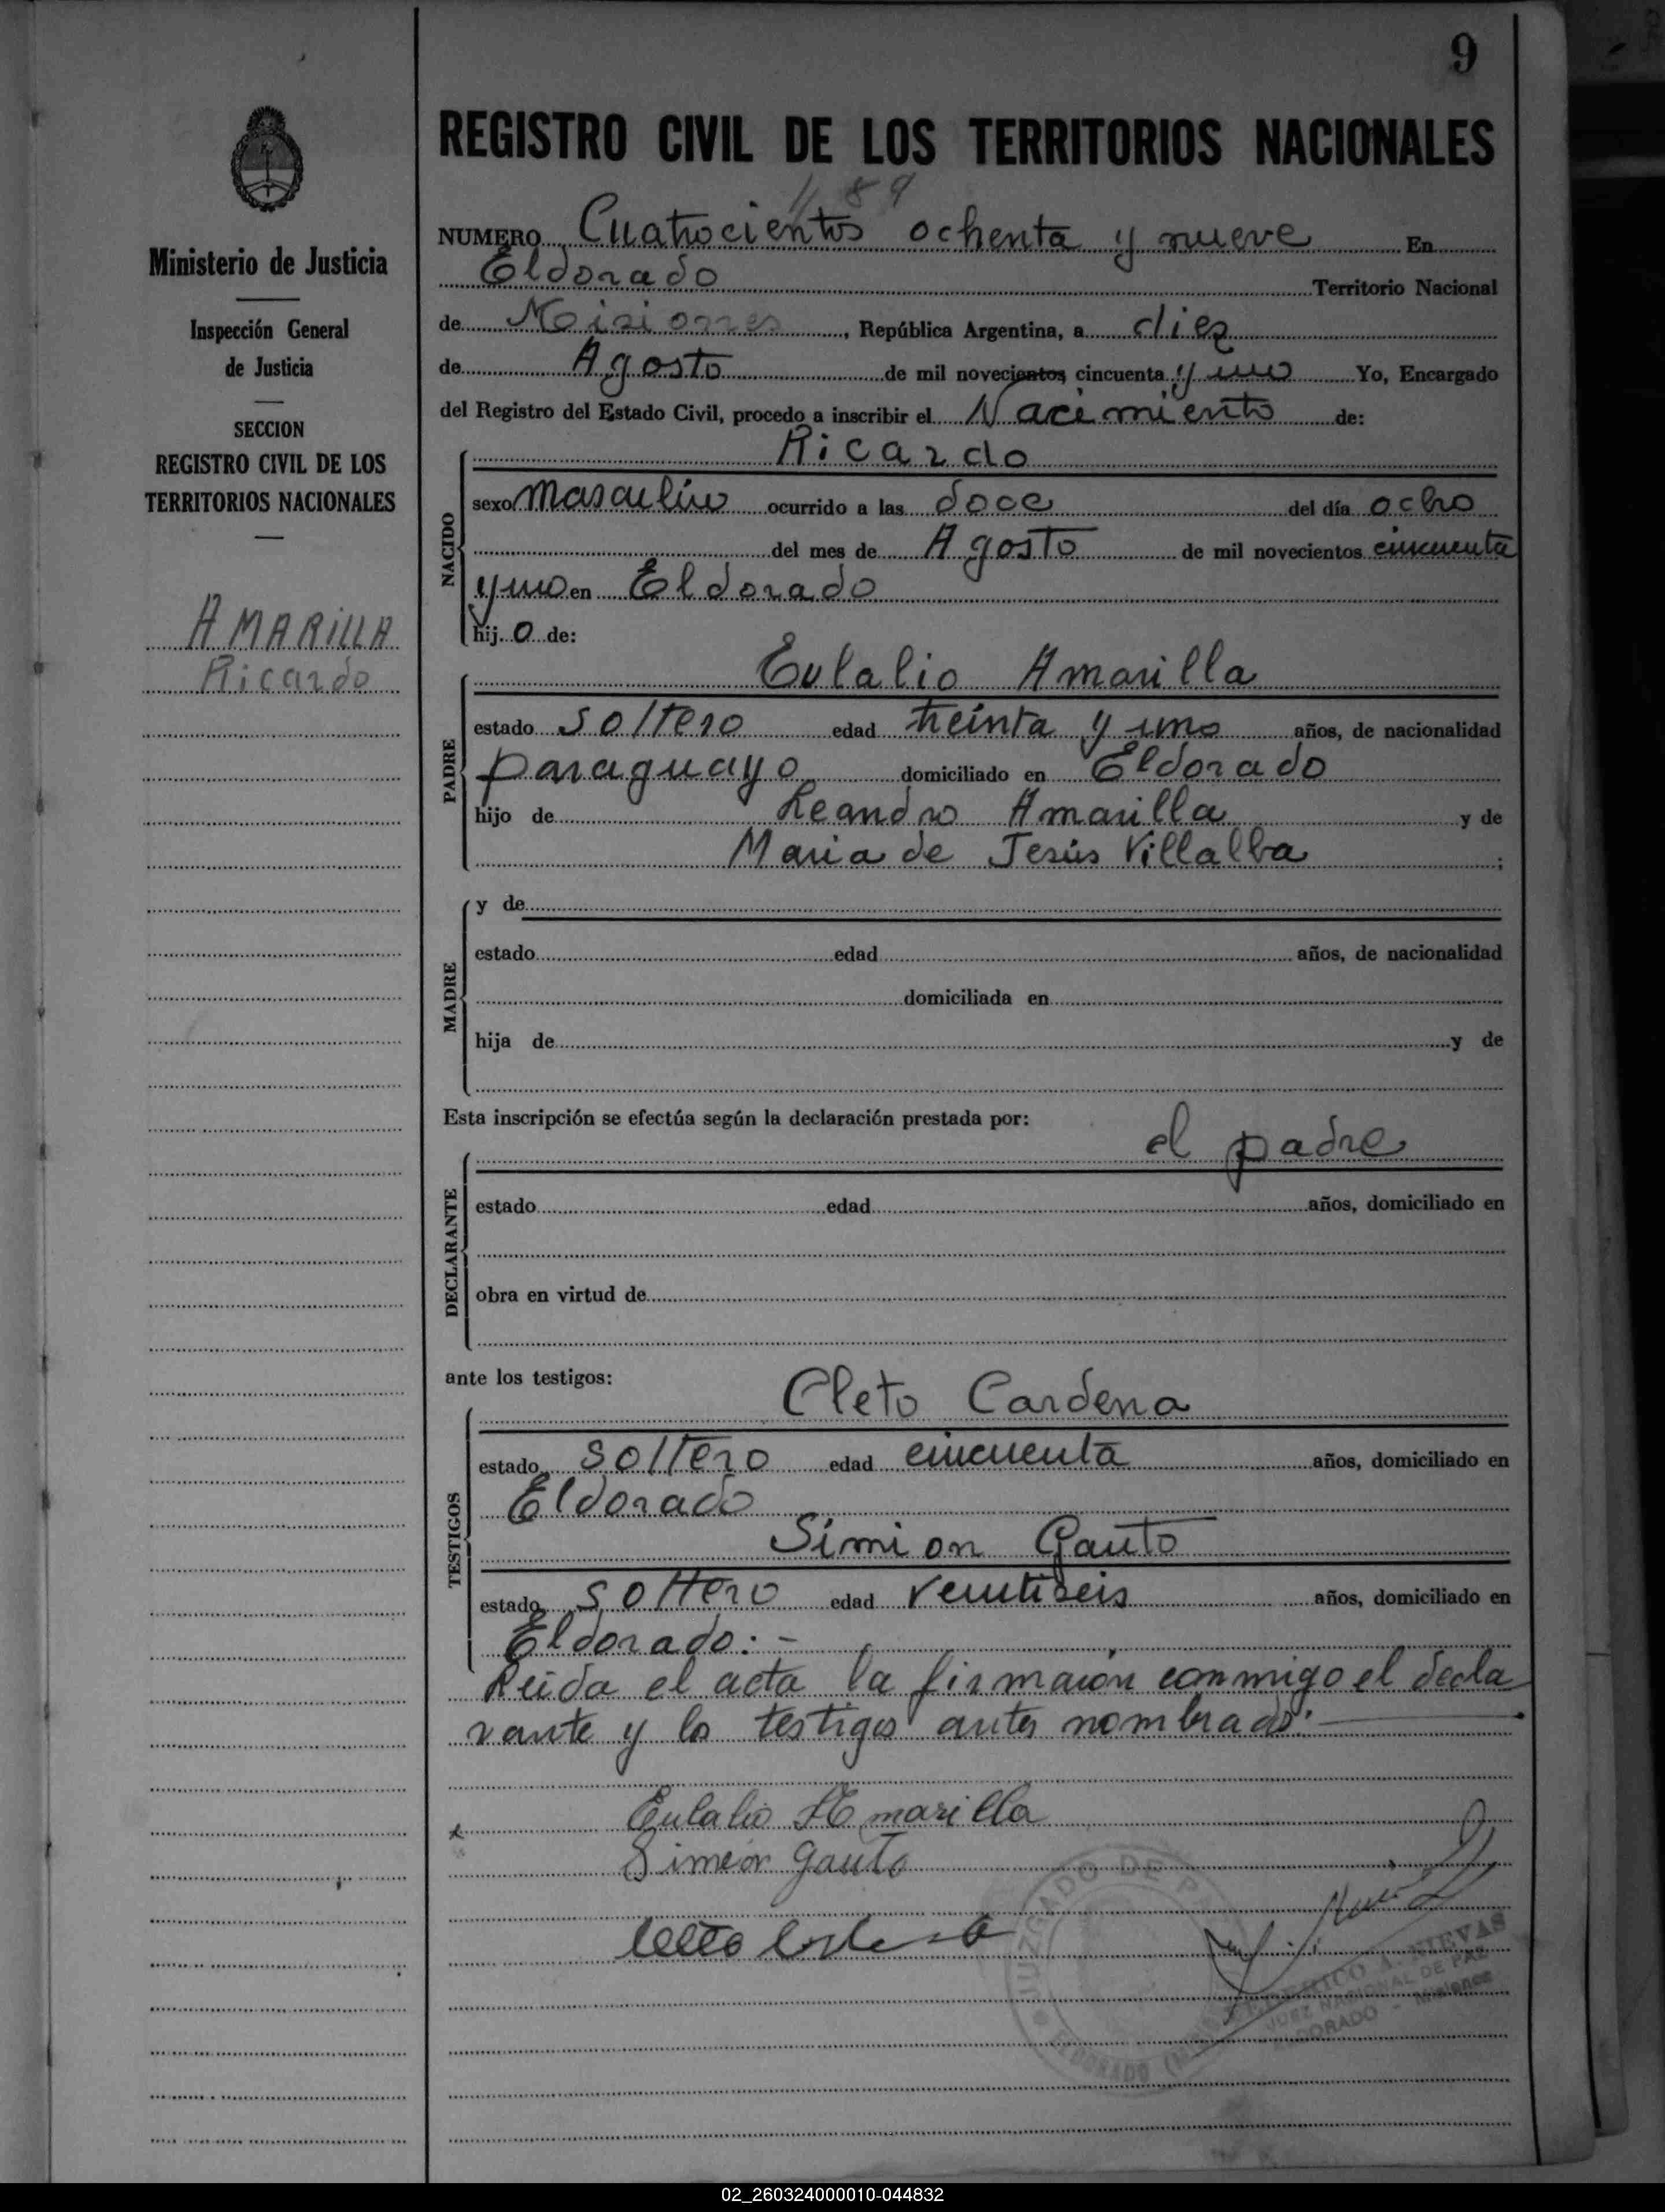 9
REGISTRO CIVIL DE LOS TERRITORIOS NACIONALES
489
NUMERO Cuatrocientos ochenta y nueve En
Eldorado Territorio Nacional
de Misiones, República Argentina, a diez
de Agosto de mil novecientos cincuenta y uno Yo, Encargado
del Registro del Estado Civil, procedo a inscribir el Nacimiento de:
Ministerio de Justicia
Inspección General
de Justicia
SECCION
REGISTRO CIVIL DE LOS
TERRITORIOS NACIONALES
AMARILLA
Ricardo
NACIDO
Ricardo
sexo masculino ocurrido a las doce del día ocho
del mes de Agosto de mil novecientos cincuenta
y uno en Eldorado
hij o de:
PADRE
Eulalio Amarilla
estado soltero edad treinta y uno años, de nacionalidad
paraguayo domiciliado en Eldorado
hijo de Leandro Amarilla y de
Maria de Jesús Villalba ;
MADRE
y de
estado edad años, de nacionalidad
domiciliada en
hija de y de
Esta inscripción se efectúa según la declaración prestada por:
DECLARANTE
el padre
estado edad años, domiciliado en
obra en virtud de
ante los testigos:
TESTIGOS
Cleto Cardena
estado soltero edad cincuenta años, domiciliado en
Eldorado
Simion Gauto
estado soltero edad veintiseis años, domiciliado en
Eldorado:-
Leida el acta la firmaron conmigo el decla
rante y los testigos antes nombrados:
Eulalio Amarilla
Simeón Gauto
JUZGADO DE PAZ
ELDORADO
FEDERICO A. NIEVAS
JUEZ NACIONAL DE PAZ
ELDORADO - Misiones
02_260324000010-044832